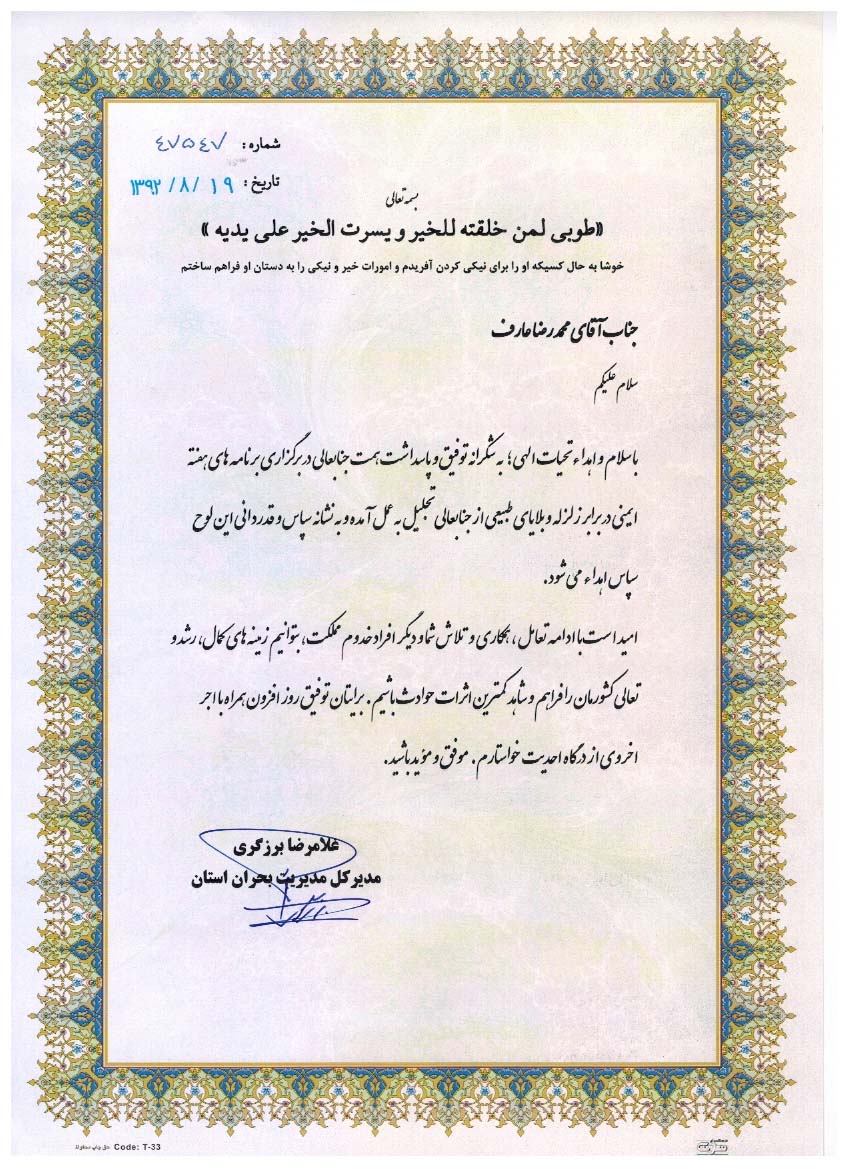 شماره : ٤٧٥٤٧
تاریخ : ۱۳۹۲/۸/۱۹
بسمه تعالی
«طوبی لمن خلقته للخیر و یسرت الخیر علی یدیه »
خوشا به حال کسیکه او را برای نیکی کردن آفریدم و امورات خیر و نیکی را به دستان او فراهم ساختم
جناب آقای محمدرضا عارف
سلام علیکم
با سلام و اهداء تحیات الهی؛ به شکرانه توفیق و پاسداشت همت جنابعالی در برگزاری برنامه های هفته
ایمنی در برابر زلزله و بلایای طبیعی از جنابعالی تجلیل به عمل آمده و به نشانه سپاس و قدردانی این لوح
سپاس اهداء می شود.
امید است با ادامه تعامل، همکاری و تلاش شما و دیگر افراد خدوم مملکت، بتوانیم زمینه های کمال، رشد و
تعالی کشورمان را فراهم و شاهد کمترین اثرات حوادث باشیم. برایتان توفیق روز افزون همراه با اجر
اخروی از درگاه احدیت خواستارم. موفق و مؤید باشید.
غلامرضا برزگری
مدیر کل مدیریت بحران استان
Code: T-33 حق چاپ محفوظ